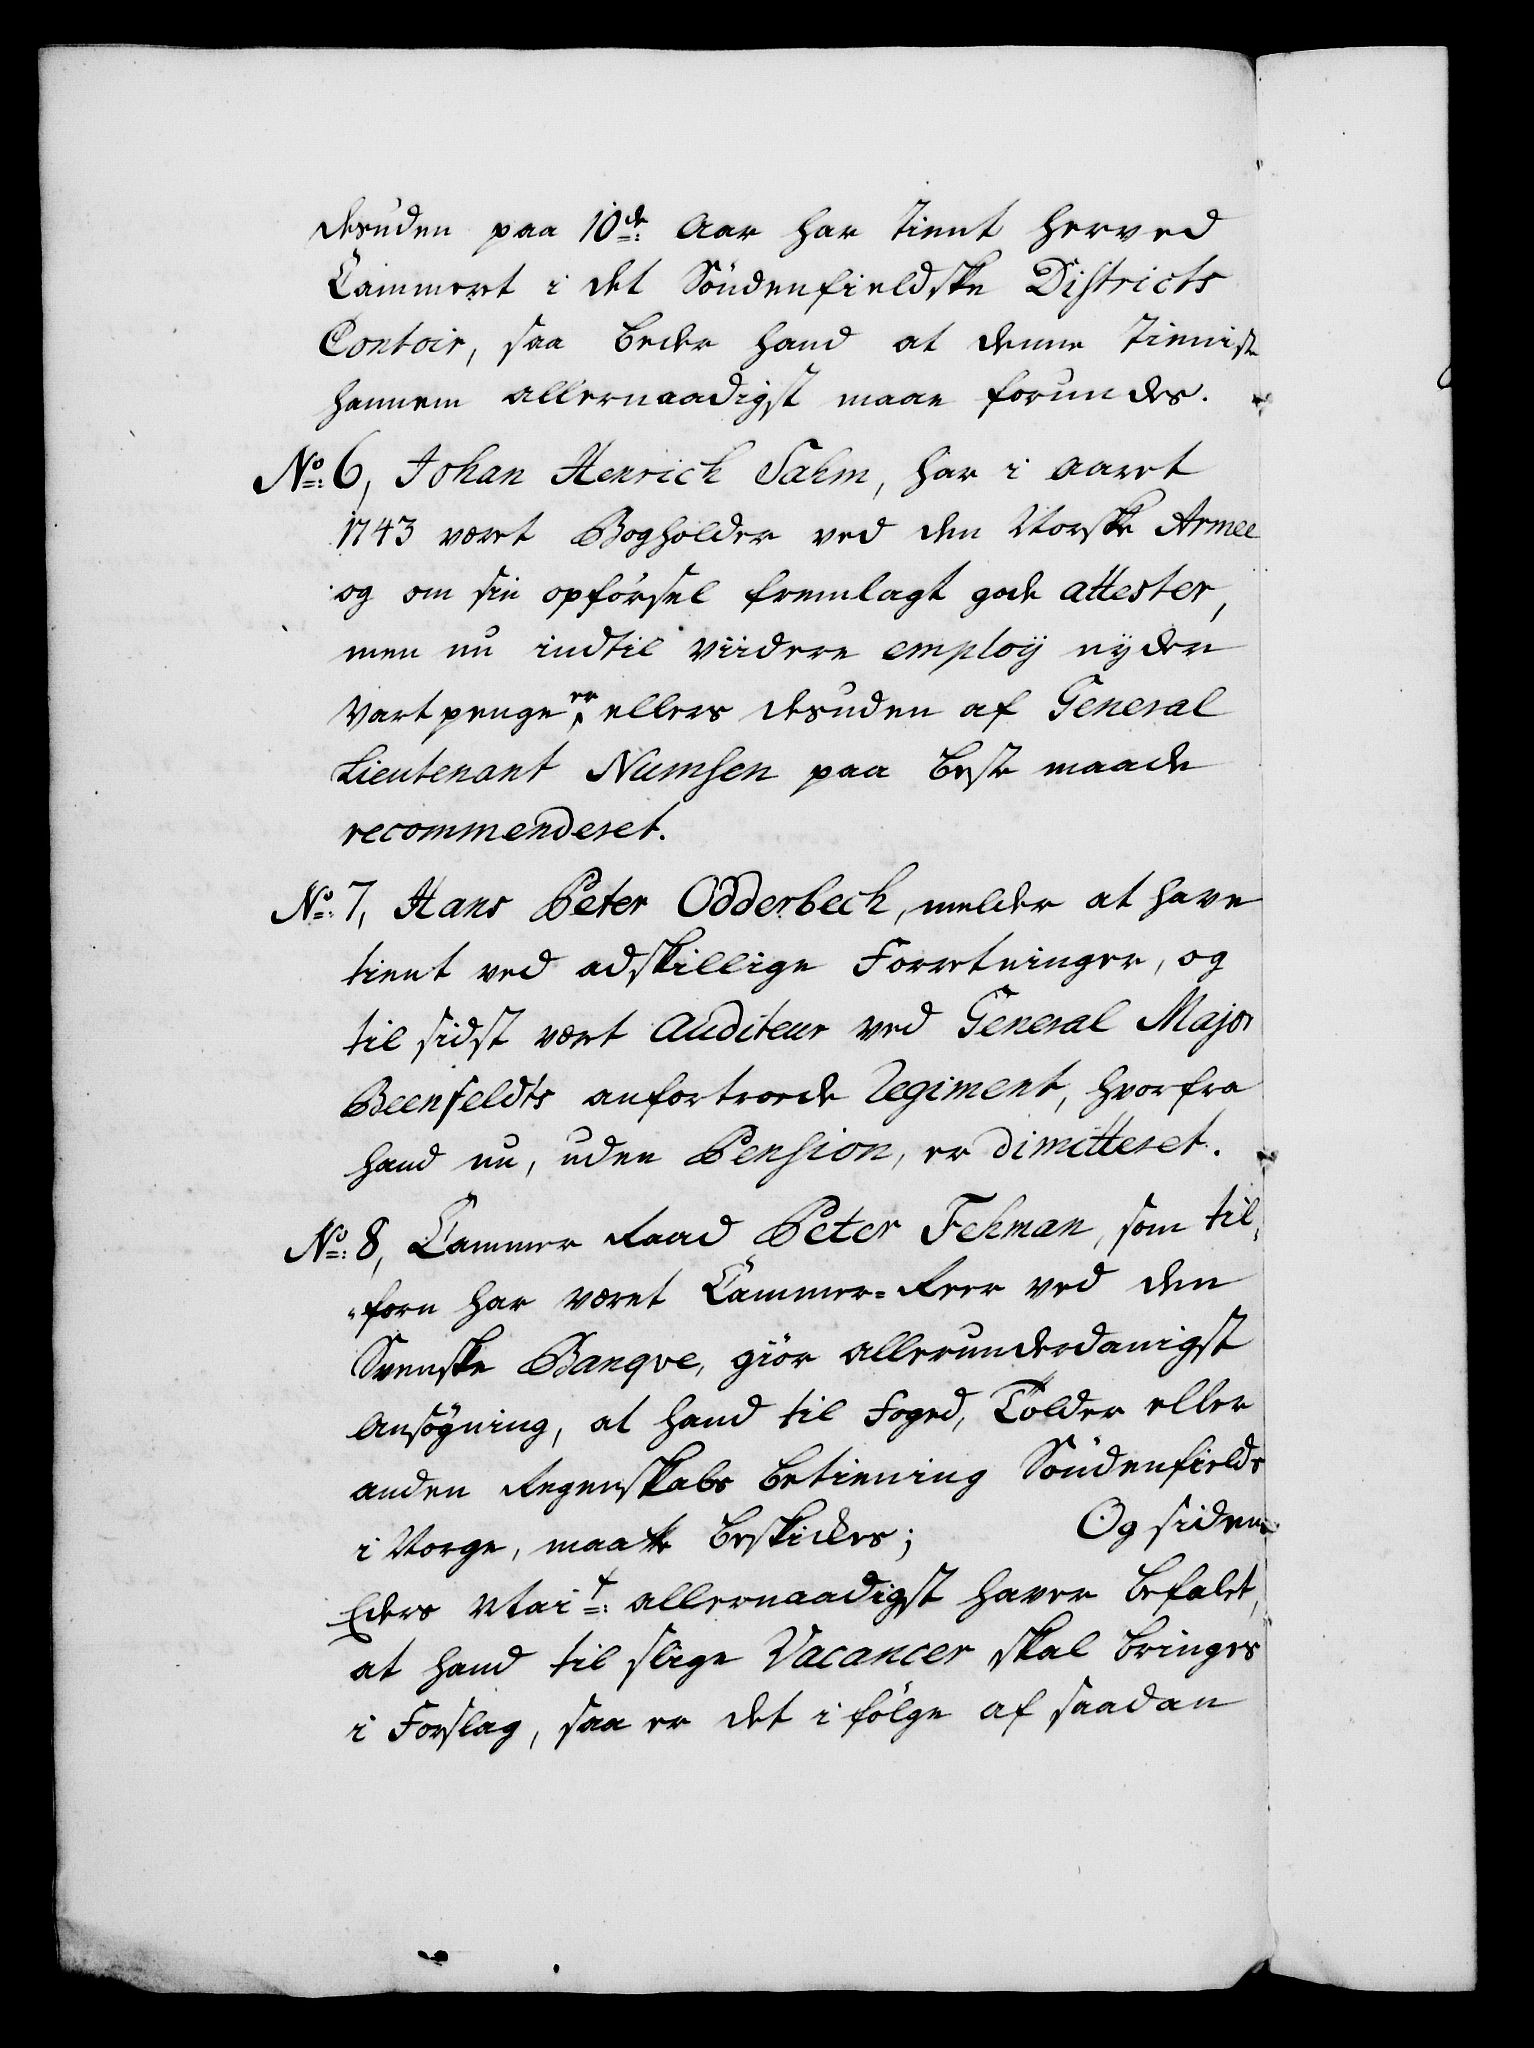 desuden paa 10de Aar har tient herved
Cammeret i det Söndenfieldske Districts
Contoir, saa beder hand at denne tieniste
hannem allernaadigst maae forundes.
No: 6, Johan Henrich Sahm, har i Aaret
1743 været Bogholder ved den Norske Armee
og om sin opförsel fremlagt gode attester,
men nu indtil viidere employ nyder
Vartpenge, er ellers desuden af General
Lieutenant Numsen paa beste maade
recommenderet.
No: 7, Hans Peter Odderbech, melder at have
tient ved adskillige Forretninger, og
til sidst vært Auditeur ved General Major
Beenfeldts anfortroede Regiment, hvorfra
hand nu, uden Pension, er dimitteret.
No: 8, Cammer Raad Peter Fehman, som til,
"forn har været Cammer-Reer ved den
Svenske Banqve, giör allerunderdanigst
Ansögning, at hand til Foged, Tolder eller
anden Regenskabs betiening Söndenfields
i Norge, maatte beskickes; Og siden
Eders Mait: allernaadigst haver befalet,
at hand til slige Vacancer skal bringes
i Forslag, saa er det i fölge af saadan